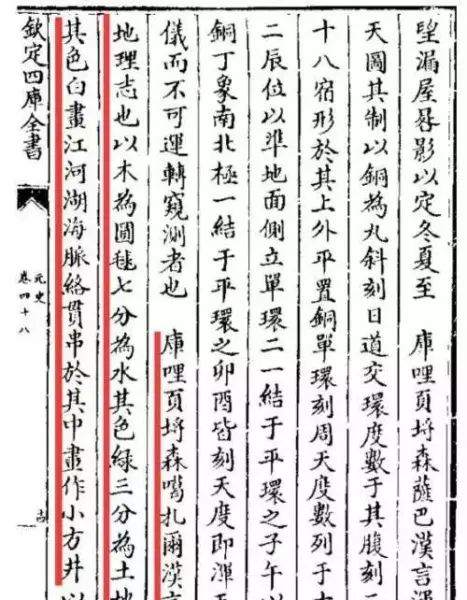 望漏屋晷影以定冬夏至　庫哩頁埓森薩巴漢言渾
天圖其制以銅為丸斜刻日道交環度數于其腹刻二
十八宿形於其上外平置銅單環刻周天度數列于十
二辰位以準地面側立單環二一結于平環之子午以
銅丁象南北極一結于平環之卯酉皆刻天度即渾天
儀而不可運轉窺測者也　庫哩頁埓森噶扎爾漢言
地理志也以木為圓毬七分為水其色綠三分為土地
其色白畫江河湖海脈絡貫串於其中畫作小方井以
欽定四庫全書
元史
卷四十八